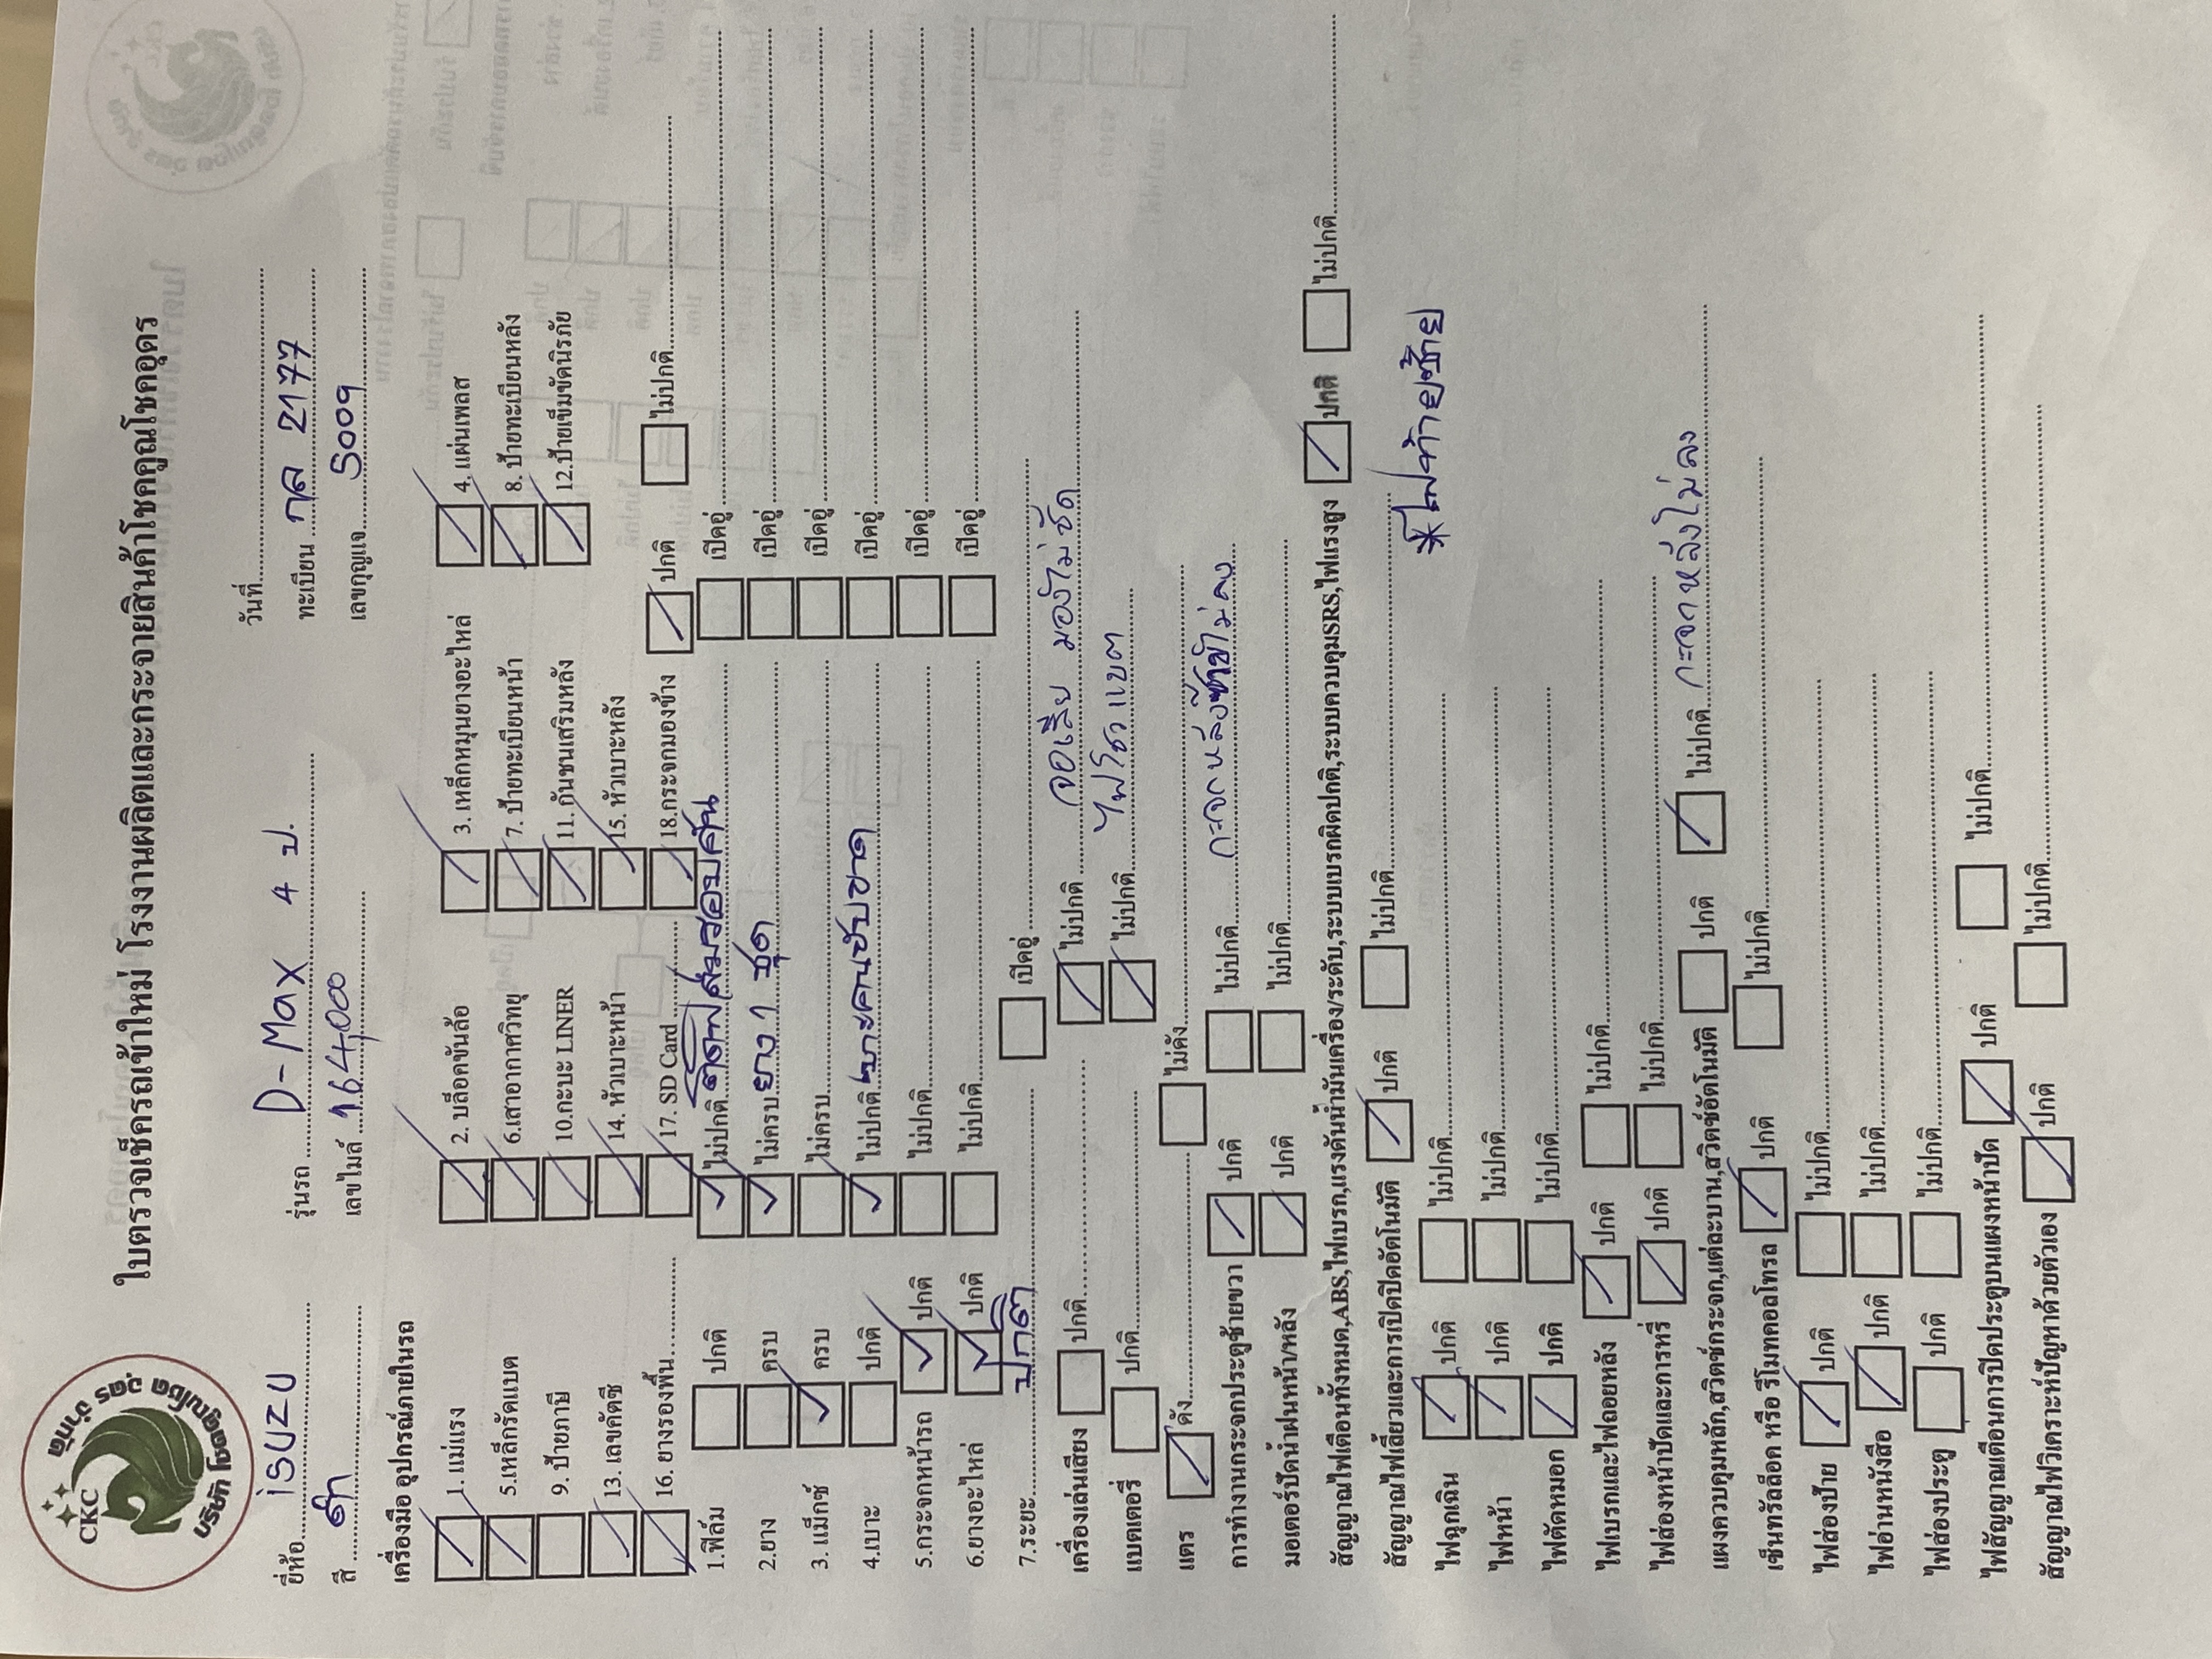 CKC
บริษัท โชคคูณโชค อุดร จำกัด
ใบตรวจเช็ครถเข้าใหม่ โรงงานผลิตและกระจายสินค้าโชคคูณโชคอุดร
วันที่
ยี่ห้อ ISUZU รุ่นรถ D-Max 4 ป. ทะเบียน กล 2177
สี ดำ เลขไมล์ 164,000 เลขกุญแจ 5009
เครื่องมือ อุปกรณ์ภายในรถ
1. แม่แรง 2. บล็อคขันล้อ 3. เหล็กหมุนยางอะไหล่ 4. แผ่นเพลส
5.เหล็กรัดแบต 6.เสาอากาศวิทยุ 7. ป้ายทะเบียนหน้า 8. ป้ายทะเบียนหลัง
9. ป้ายภาษี 10.กะบะ LINER 11. กันชนเสริมหลัง 12.ป้ายเข็มขัดนิรภัย
13. เลขคัตซี 14. หัวเบาะหน้า 15. หัวเบาะหลัง
16. ยางรองพื้น 17. SD Card 18.กระจกมองข้าง ปกติ ไม่ปกติ
1.ฟิล์ม ปกติ ไม่ปกติ ติดฟิล์มรอบคัน เปิดอู่
2.ยาง ครบ ไม่ครบ ยาง 1 ชุด เปิดอู่
3. แม็กซ์ ครบ ไม่ครบ เปิดอู่
4.เบาะ ปกติ ไม่ปกติ เบาะคนขับขาด เปิดอู่
5.กระจกหน้ารถ ปกติ ไม่ปกติ เปิดอู่
6.ยางอะไหล่ ปกติ ไม่ปกติ เปิดอู่
7.ระยะ ปกติ เปิดอู่
เครื่องเล่นเสียง ปกติ ไม่ปกติ จอเสีย มองไม่ชัด
แบตเตอรี่ ปกติ ไม่ปกติ ไฟโชว์แบต
แตร ดัง ไม่ดัง
การทำงานกระจกประตูซ้ายขวา ปกติ ไม่ปกติ กระจกหลังซ้ายไม่ลง
มอเตอร์ปัดน้ำฝนหน้า/หลัง ปกติ ไม่ปกติ
สัญญาณไฟเตือนทั้งหมด,ABS,ไฟเบรก,แรงดันน้ำมันเครื่อง/ระดับ,ระบบเบรกผิดปกติ,ระบบควบคุมSRS,ไฟแรงสูง ปกติ ไม่ปกติ
สัญญาณไฟเลี้ยวและการเปิดปิดอัตโนมัติ ปกติ ไม่ปกติ
ไฟฉุกเฉิน ปกติ ไม่ปกติ *ไฟท้ายซ้าย
ไฟหน้า ปกติ ไม่ปกติ
ไฟตัดหมอก ปกติ ไม่ปกติ
ไฟเบรกและไฟถอยหลัง ปกติ ไม่ปกติ
ไฟส่องหน้าปัดและการหรี่ ปกติ ไม่ปกติ
แผงควบคุมหลัก,สวิตซ์กระจก,แต่ละบาน,สวิตซ์อัตโนมัติ ปกติ ไม่ปกติ กระจกหลังไม่ลง
เซ็นทรัลล็อค หรือ รีโมทคอลโทรล ปกติ ไม่ปกติ
ไฟส่องป้าย ปกติ ไม่ปกติ
ไฟอ่านหนังสือ ปกติ ไม่ปกติ
ไฟส่องประตู ปกติ ไม่ปกติ
ไฟสัญญาณเตือนการปิดประตูบนแผงหน้าปัด ปกติ ไม่ปกติ
สัญญาณไฟวิเคราะห์ปัญหาด้วยตัวเอง ปกติ ไม่ปกติ